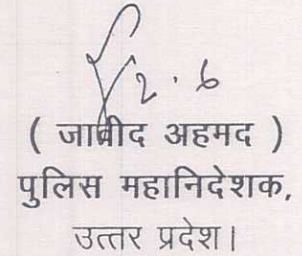 2.6
( जावीद अहमद )
पुलिस महानिदेशक,
उत्तर प्रदेश।